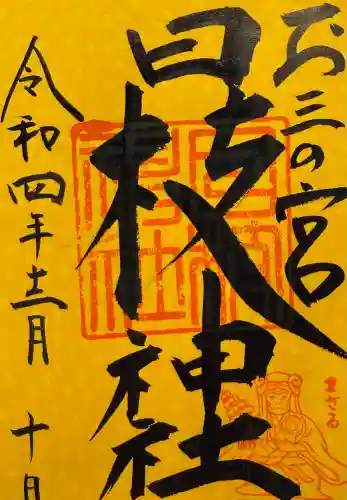 お三の宮
日枝神社
令和四年十二月十日